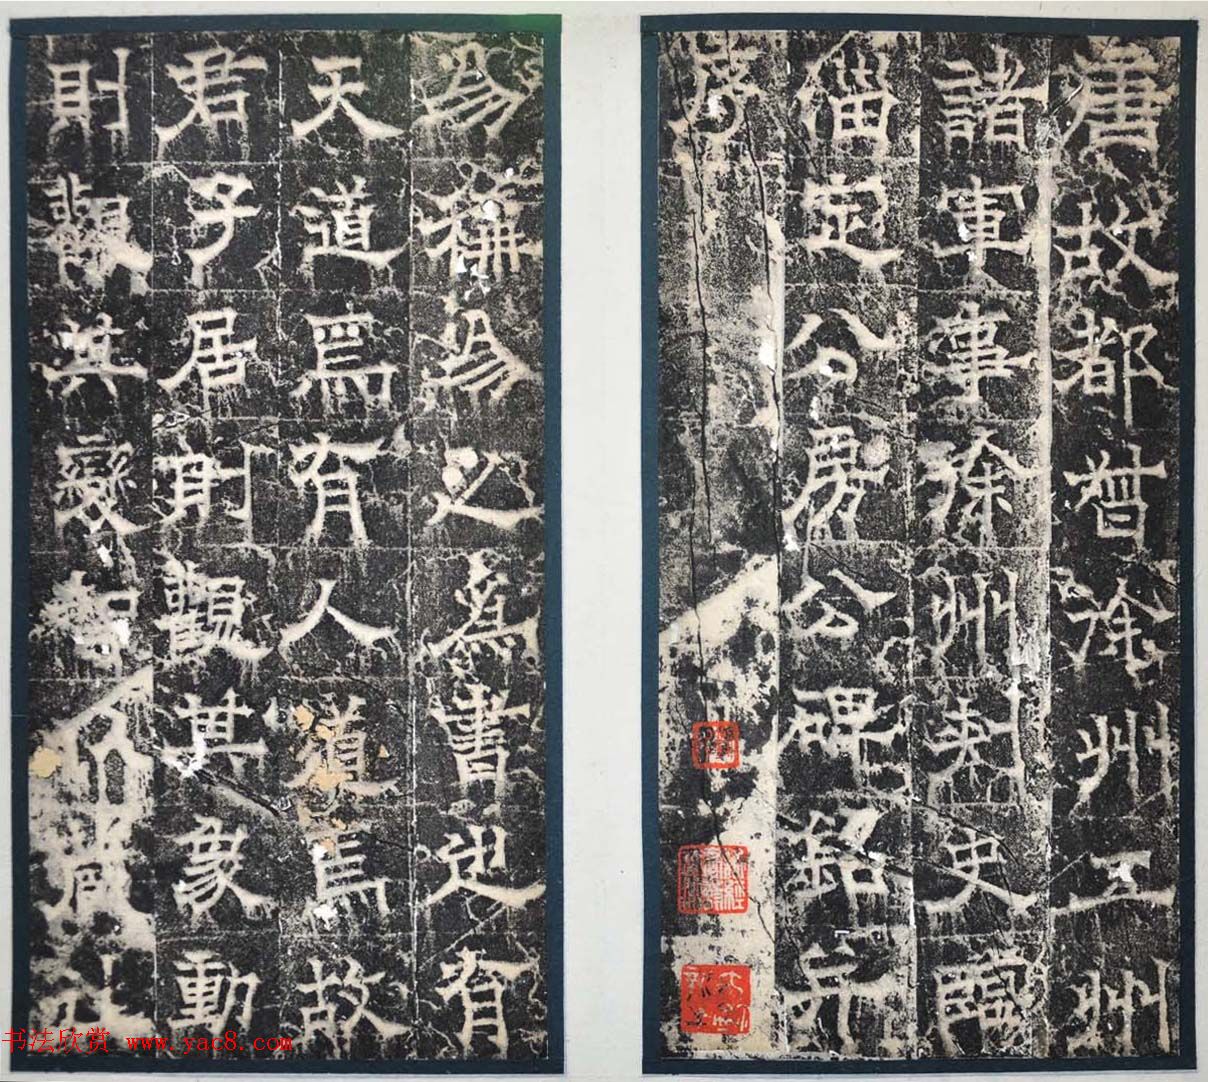 唐故都督徐州五州
諸軍事徐州刾史臨
淄定公房公碑銘并
序
易稱易之為書也有
天道焉有人道焉故
君子居則觀其象動
則觀其變
书法欣赏 www.yac8.com